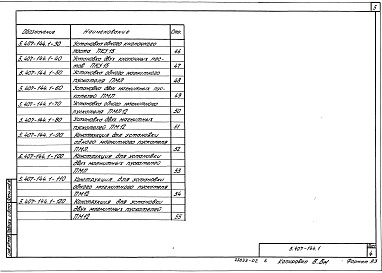 3
Обозначение Наименование Стр.
5.407-144.1-30 Установка одного кнопочного
поста ПКЕ15 46
5.407-144.1-40 Установка двух кнопочных пос-
тов ПКЕ15 47
5.407-144.1-50 Установка одного магнитного
пускателя ПМЛ 48
5.407-144.1-60 Установка двух магнитных пус-
кателей ПМЛ 49
5.407-144.1-70 Установка одного магнитного
пускателя ПМ12 50
5.407-144.1-80 Установка двух магнитных
пускателей ПМ12 51
5.407-144.1-90 Конструкция для установки
одного магнитного пускателя
ПМЛ 52
5.407-144.1-100 Конструкция для установки
двух магнитных пускателей
ПМЛ 53
5.407-144.1-110 Конструкция для установки
одного магнитного пускателя
ПМ12 54
5.407-144.1-120 Конструкция для установки
двух магнитных пускателей
ПМ12 55
5.407-144.1
4
Копировал Формат А3